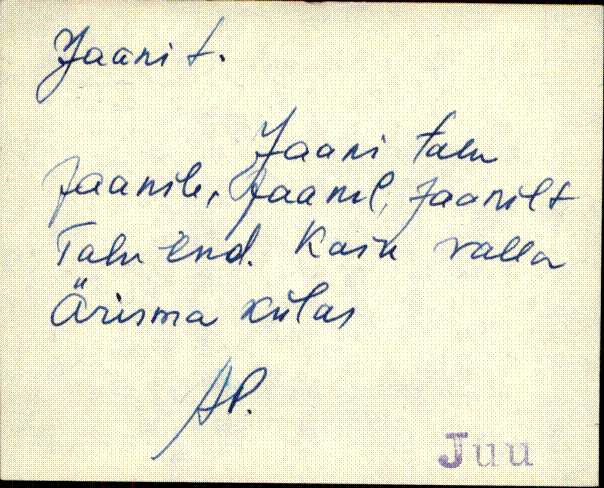 Jaani t.
Jaani talu
Jaanile, Jaanil, Jaanilt
Talu end. Kaiu valla
Ärisma külas
AP.
Juu